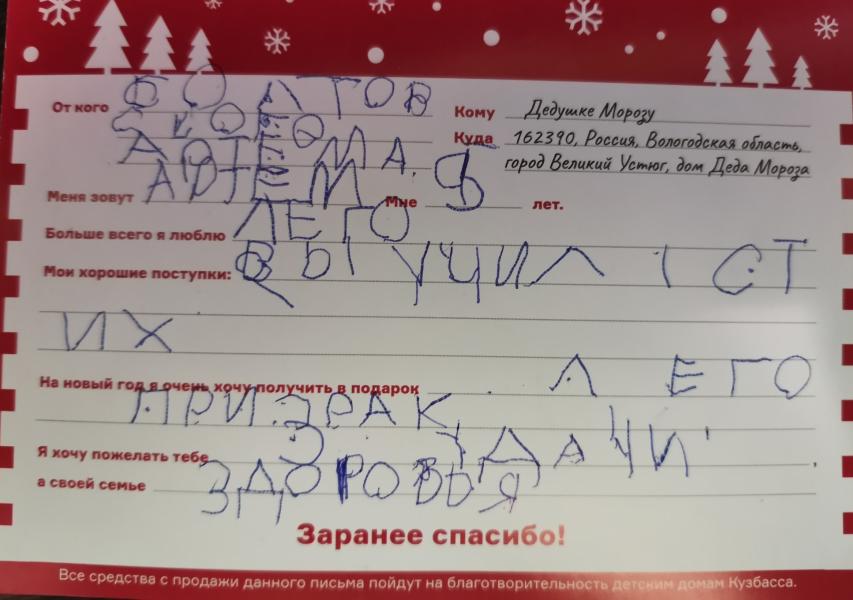 От кого БОЛТОВ
Кому Дедушке Морозу
Куда 162390, Россия, Вологодская область,
АРТЁМА.
город Великий Устюг, дом Деда Мороза
Меня зовут АРТЁМ Мне 5 лет.
Больше всего я люблю ЛЕГО
Мои хорошие поступки: ВЫУЧИЛ 1 СТ
ИХ
На новый год я очень хочу получить в подарок ЛЕГО
ПРИЗРАК
Я хочу пожелать тебе УДАЧИ,
а своей семье ЗДОРОВЬЯ
Заранее спасибо!
Все средства с продажи данного письма пойдут на благотворительность детским домам Кузбасса.